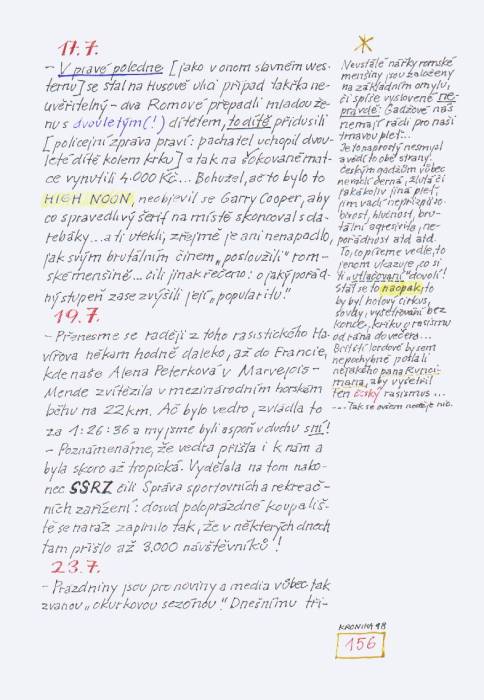 17.7.
- V pravé poledne [jako v onom slavném wes-
ternu] se stal na Husově ulici případ takřka ne-
uvěřitelný - dva Romové přepadli mladou že-
nu s dvouletým (!) dítětem, to dítě přidusili
[policejní zpráva praví: pachatel uchopil dvou-
leté dítě kolem krku] a tak na šokované mat-
ce vynutili 4.000 Kč... Bohužel, ač to bylo to
HIGH NOON, neobjevil se Garry Cooper, aby
co spravedlivý šerif na místě skoncoval s da-
rebáky... a ti utekli, zřejmě je ani nenapadlo,
jak svým brutálním činem „posloužili" rom-
ské menšině... čili jinak řečeno: o jaký pořád-
ný stupeň zase zvýšili její „popularitu!"
19.7.
- Přenesme se raději z toho rasistického Ha-
vířova někam hodně daleko, až do Francie,
kde naše Alena Peterková v Marvejols-
Mende zvítězila v mezinárodním horském
běhu na 22 km. Ač bylo vedro, zvládla to
za 1:26:36 a my jsme byli aspoň v duchu s ní!
- Poznamenáme, že vedra přišla i k nám a
byla skoro až tropická. Vydělala na tom nako-
nec SSRZ čili Správa sportovních a rekreač-
ních zařízení: dosud poloprázdné koupališ-
tě se naráz zaplnilo tak, že v některých dnech
tam přišlo až 3.000 návštěvníků!
23.7.
- Prázdniny jsou pro noviny a media vůbec tak
zvanou „okurkovou sezónou". Dnešnímu tři-
Neustálé nářky romské
menšiny jsou založeny
na základním omylu,
či spíše vyslovené ne-
pravdě: Gadžové nás
nemají rádi pro naši
tmavou pleť...
Je to naprostý nesmysl
a vědí to obě strany.
Českým gadžům vůbec
nevadí černá, žlutá či
jakákoliv jiná pleť,
jim vadí nepřizpůso-
bivost, hlučnost, bru-
tální agresivita, ne-
pořádnost atd. atd.
To, co píšeme vedle, to
jenom ukazuje, co si
ti „utlačovaní" dovolí!
Stát se to naopak, to
by byl hotový cirkus,
soudy, vyšetřování bez
konce, křiku o rasismu
od rána do večera...
Britští lordové by sem
nepochybně poslali
nějakého pana Runci-
mana, aby vyšetřil
ten český rasismus...
... Tak se ovšem neděje nic.
KRONIKA 98
156